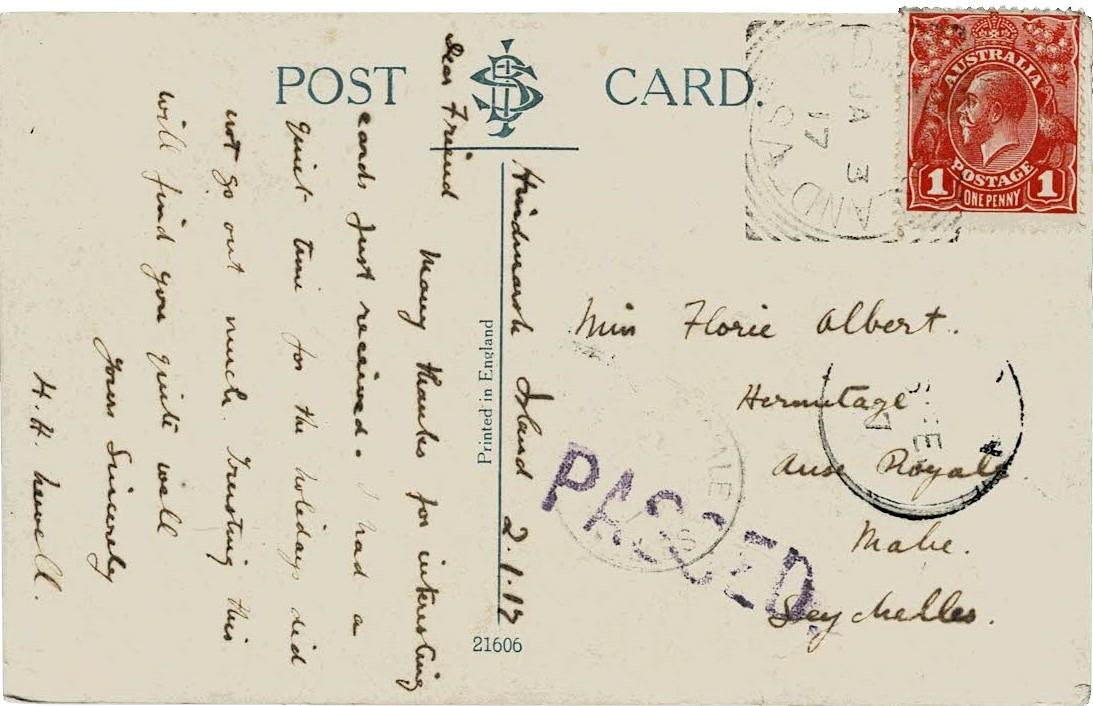 POST CARD.
AUSTRALIA
POSTAGE
1 ONE PENNY 1
JA 3
17
S A
Hindmarsh Island 2.1.17
Dear Friend
Many thanks for interesting
cards just received. I had a
quiet time for the holidays did
not go out much. Trusting this
will find you quite well
Yours Sincerely
H.H. Newell.
Printed in England
21606
Miss Florie Albert.
Hermitage
Anse Royale
Mahe.
Seychelles.
PASSED.